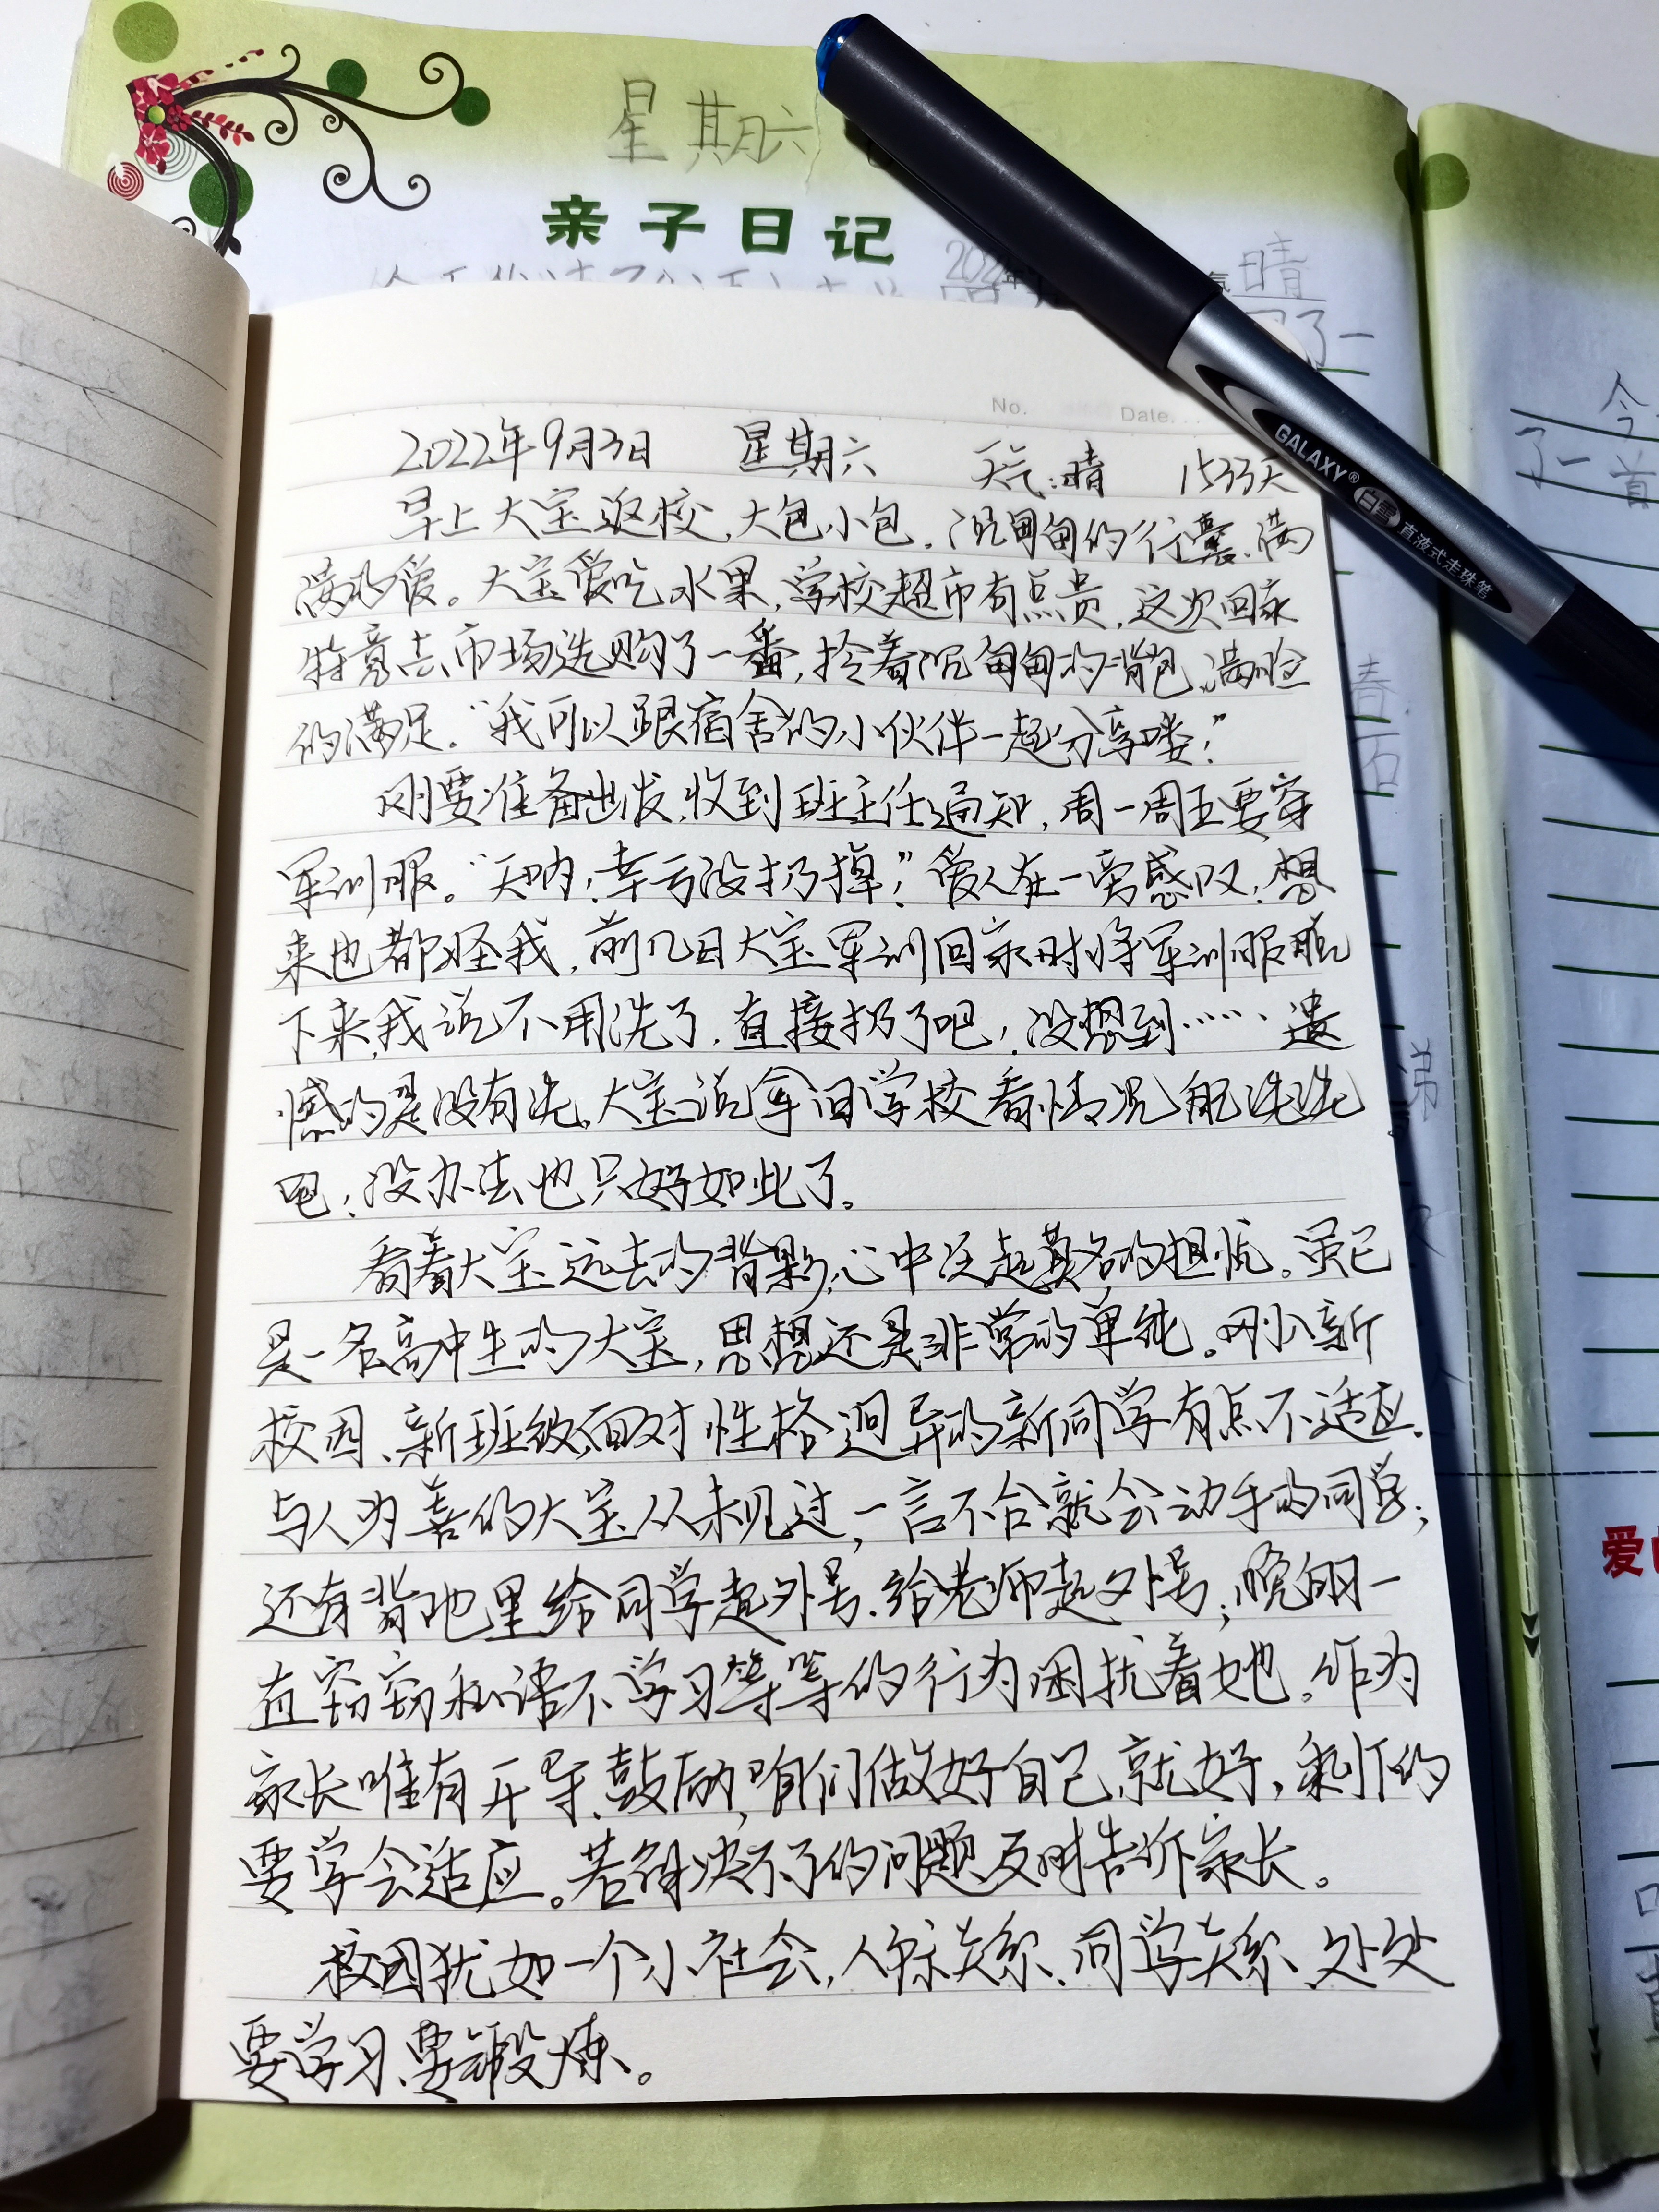 星期六
亲子日记
晴
No.
Date.
GALAXY®
白雪 直液式走珠笔
2022年9月3日 星期六 天气:晴 1533天
早上大宝返校,大包小包,沉甸甸的行囊、满
满的爱。大宝爱吃水果,学校超市有点贵,这次回家
特意去市场选购了一番,拎着沉甸甸的背包,满脸
的满足。“我可以跟宿舍的小伙伴一起分享喽!”
刚要准备出发,收到班主任通知,周一周五要穿
军训服。“天呐!幸亏没扔掉!”爱人在一旁感叹,想
来也都怪我,前几日大宝军训回家时将军训服脱
下来,我说不用洗了,直接扔了吧!没想到……遗
憾的是没有洗,大宝说拿回学校看情况能洗洗
吧!没办法也只好如此了。
看着大宝远去的背影,心中泛起莫名的担忧。虽已
是一名高中生的大宝,思想还是非常的单纯。刚入新
校园、新班级,面对性格迥异的新同学有点不适应。
与人为善的大宝从未见过,一言不合就会动手的同学;
还有背地里给同学起外号、给老师起外号;晚自习一
直窃窃私语不学习等等的行为困扰着她。作为
家长唯有开导、鼓励,咱们做好自己就好,剩下的
要学会适应。若解决不了的问题及时告诉家长。
校园犹如一个小社会,人际关系、同学关系、处处
要学习、要锻炼。